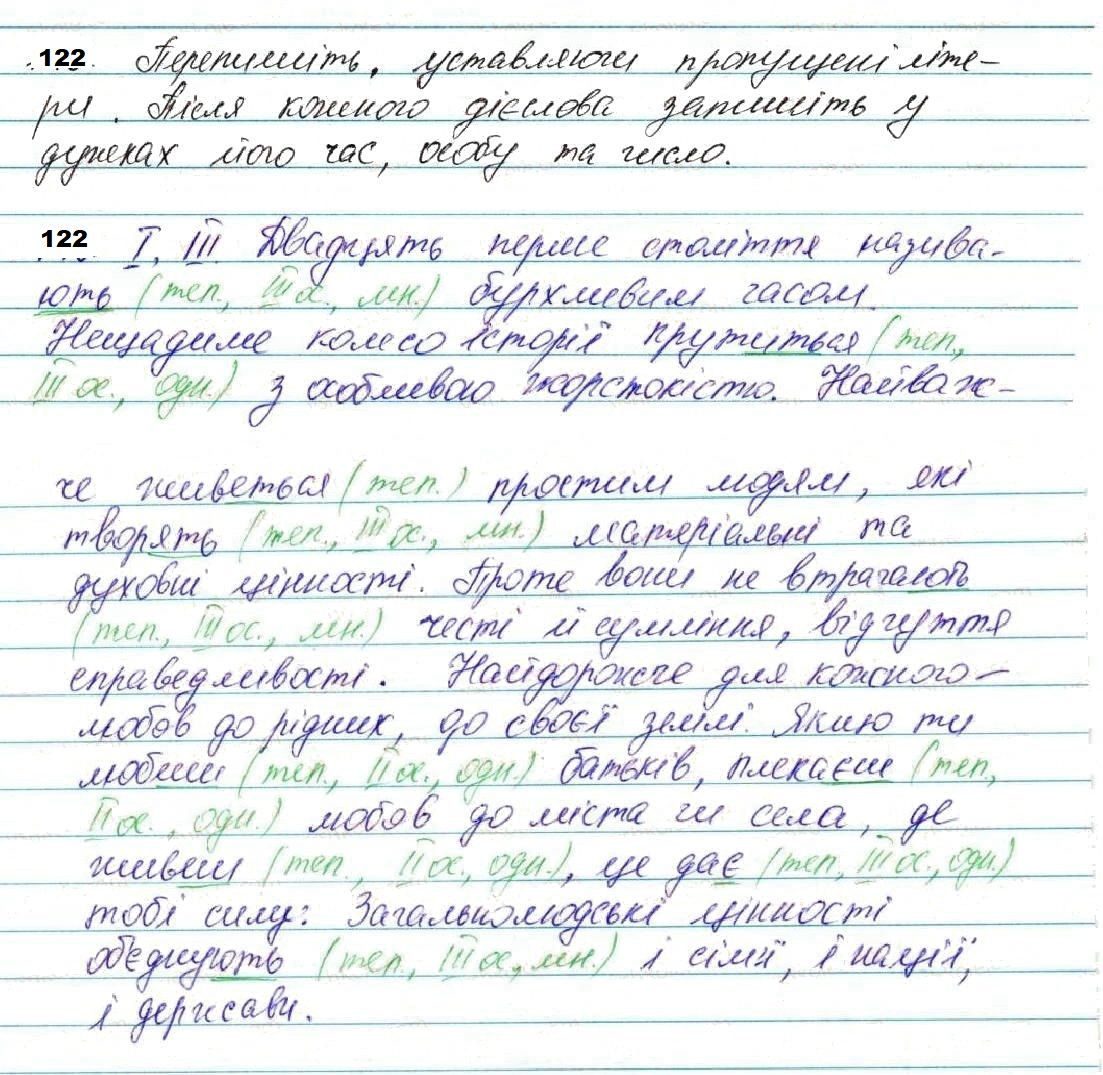 122 Перепишіть, уставляючи пропущені літе-
ри. Після кожного дієслова запишіть у
дужках його час, особу та число.
122 I, III. Двадцять перше століття назива-
ють (теп., III ос., мн.) бурхливим часом.
Нещадиме колесо історії крутиться (теп.,
III ос., одн.) з особливою жорстокістю. Найваж-
че живеться (теп.) простим людям, які
творять (теп., III ос., мн.) матеріальні та
духовні цінності. Проте вони не втрачають
(теп., III ос., мн.) честі й сумління, відчуття
справедливості. Найдорожче для кожного –
любов до рідних, до своєї землі. Якщо ти
любиш (теп., II ос., одн.) батьків, плекаєш (теп.,
II ос., одн.) любов до міста чи села, де
живеш (теп., II ос., одн.), це дає (теп., III ос., одн.)
тобі силу. Загальнолюдські цінності
об'єднують (теп., III ос., мн.) і сім'ї, і нації,
і держави.